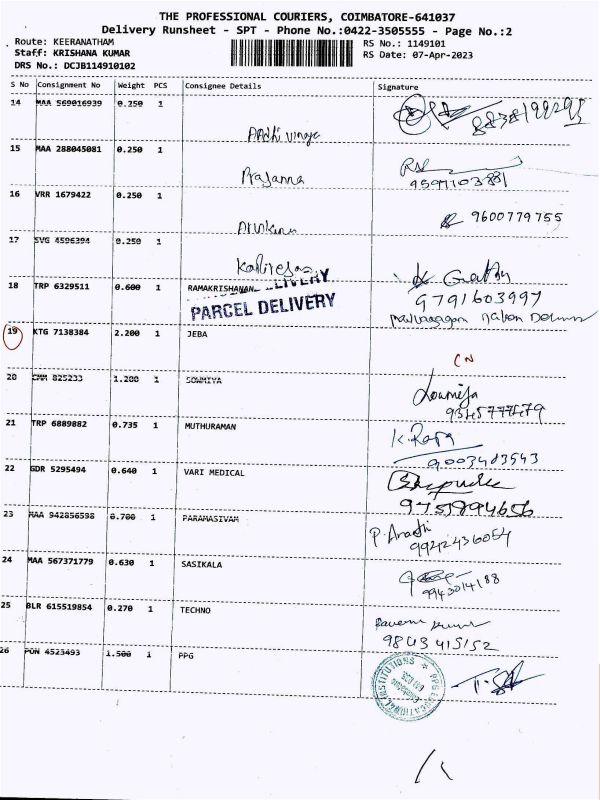 THE PROFESSIONAL COURIERS, COIMBATORE-641037
Delivery Runsheet - SPT - Phone No.:0422-3505555 - Page No.:2
Route: KEERANATHAM RS No.: 1149101
Staff: KRISHANA KUMAR RS Date: 07-Apr-2023
DRS No.: DCJB114910102
S No Consignment No Weight PCS Consignee Details Signature
14 MAA 569016939 0.250 1
15 MAA 288045081 0.250 1 Prasanna
9597103881
16 VRR 1679422 0.250 1
9600779755
17 SVG 4596394 0.250 1
18 TRP 6329511 0.600 1 RAMAKRISHANAN
9791603997
PARCEL DELIVERY
19 KTG 7138384 2.200 1 JEBA
CN
20 CMM 825233 1.200 1 SOWMIYA
Soumiya
9345777479
21 TRP 6889882 0.735 1 MUTHURAMAN
9003483543
22 GDR 5295494 0.640 1 VARI MEDICAL
9751894656
23 MAA 942856598 0.700 1 PARAMASIVAM
9942436054
24 MAA 567371779 0.630 1 SASIKALA
9943014188
25 BLR 615519854 0.270 1 TECHNO
9843415152
26 PON 4523493 1.500 1 PPG
PPG EDUCATIONAL INSTITUTIONS